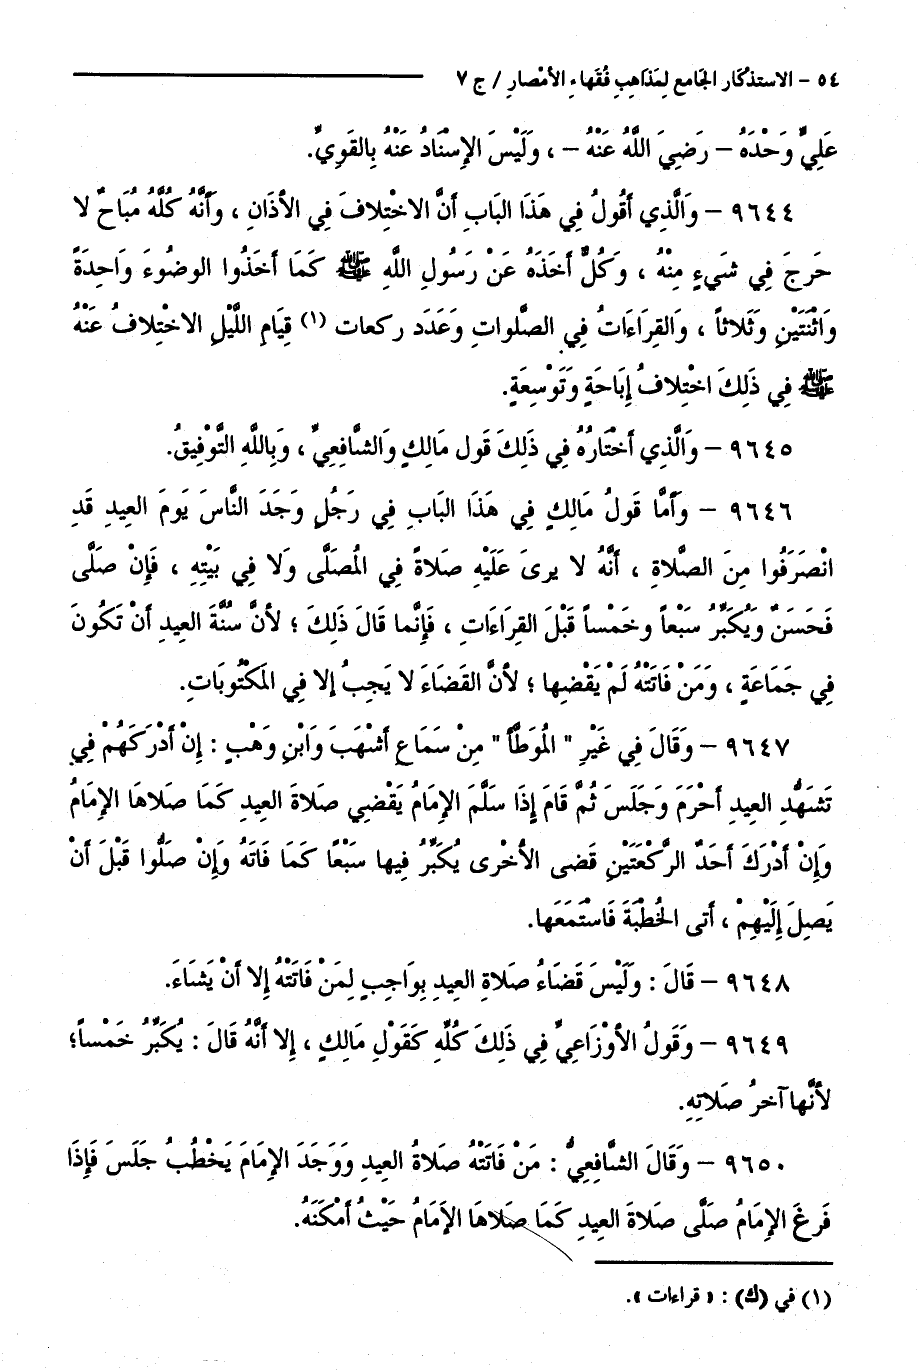 ٥٤ - الاستذكَار الجَامع لِمَذاهِبِ فُقَهاءِ الأَمْصارِ / ج ٧
عَلِيٍّ وَحْدَهُ – رَضِيَ اللَّهُ عَنْهُ – ، وَلَيْسَ الإِسْنَادُ عَنْهُ بِالقَوِيِّ.
٩٦٤٤ – وَالَّذِي أَقُولُ فِي هَذَا البَابِ أَنَّ الاخْتِلافَ فِي الأَذَانِ ، وَأَنَّهُ كُلَّهُ مُبَاحٌ لا
حَرَجَ فِي شَيْءٍ مِنْهُ ، وَكُلٌّ أَخَذَهُ عَنْ رَسُولِ اللَّهِ ﷺ كَمَا أَخَذُوا الوضُوءَ وَاحِدَةً
وَاثْنَتَيْنِ وَثَلاثاً ، وَالقِرَاءَاتُ فِي الصَّلواتِ وَعَدَد ركعات (١) قِيَامِ اللَّيْلِ الاخْتِلافُ عَنْهُ
ﷺ فِي ذَلِكَ اخْتِلافُ إِبَاحَةٍ وَتَوْسِعَةٍ.
٩٦٤٥ – وَالَّذِي أَخْتَارُهُ فِي ذَلِكَ قَول مَالِكٍ وَالشَّافِعِيِّ ، وَبِاللَّهِ التَّوْفِيقُ.
٩٦٤٦ – وَأَمَّا قَولُ مَالِكٍ فِي هَذَا البَابِ فِي رَجُلٍ وَجَدَ النَّاسَ يَومَ العِيدِ قَدِ
انْصَرَفُوا مِنَ الصَّلاةِ ، أَنَّهُ لا يرىَ عَلَيْهِ صَلاةً فِي المُصَلَّى وَلا فِي بَيْتِهِ ، فَإِنْ صَلَّى
فَحَسَنٌ وَيُكَبِّرُ سَبْعاً وخَمْساً قَبْلَ القِرَاءَاتِ ، فَإِنَّما قَالَ ذَلِكَ ؛ لأَنَّ سُنَّةَ العِيدِ أَنْ تَكُونَ
فِي جَمَاعَةٍ ، وَمَنْ فَاتَتْهُ لَمْ يَقْضِها ؛ لأَنَّ القَضَاءَ لا يَجِبُ إلا فِي المَكْتُوبَاتِ.
٩٦٤٧ – وَقَالَ فِي غَيْرِ " المُوَطَّأ " مِنْ سَمَاعِ أَشْهَبَ وَابْنِ وَهْبٍ : إِنْ أَدْرَكَهُمْ فِي
تَشَهُّدِ العِيدِ أحْرَمَ وَجَلَسَ ثُمَّ قَامَ إِذَا سَلَّمَ الإِمَامُ يَقْضِي صَلاةَ العِيدِ كَمَا صَلاهَا الإِمَامُ
وَإِنْ أَدْرَكَ أَحَدَ الرَّكْعَتَيْنِ قَضى الأُخْرى يُكَبِّرُ فِيها سَبْعًا كَمَا فَاتَهُ وَإِنْ صَلُّوا قَبْلَ أَنْ
يَصِلَ إِلَيْهِمْ ، أَتى الخُطْبَةَ فَاسْتَمَعَها.
٩٦٤٨ – قَالَ : وَلَيْسَ قَضَاءُ صَلاةِ العِيدِ بِوَاجِبٍ لِمَنْ فَاتَتْهُ إِلا أَنْ يَشَاءَ.
٩٦٤٩ – وَقَولُ الأَوْزَاعِيِّ فِي ذَلِكَ كُلِّهِ كَقَولِ مَالِكٍ ، إلا أَنَّهُ قَالَ : يُكَبِّرُ خَمْساً؛
لأَنَّها آخرُ صَلاتِهِ.
٩٦٥٠ – وَقَالَ الشَّافِعِيُّ : مَنْ فَاتَتْهُ صَلاةُ العِيدِ وَوَجَدَ الإِمَامَ يَخْطُبُ جَلَسَ فَإِذَا
فَرغَ الإِمَامُ صَلَّى صَلاةَ العِيدِ كَمَا صَلاهَا الإِمَامُ حَيْثُ أَمْكَنَهُ.
(١) في (ك) : « قراءات ».